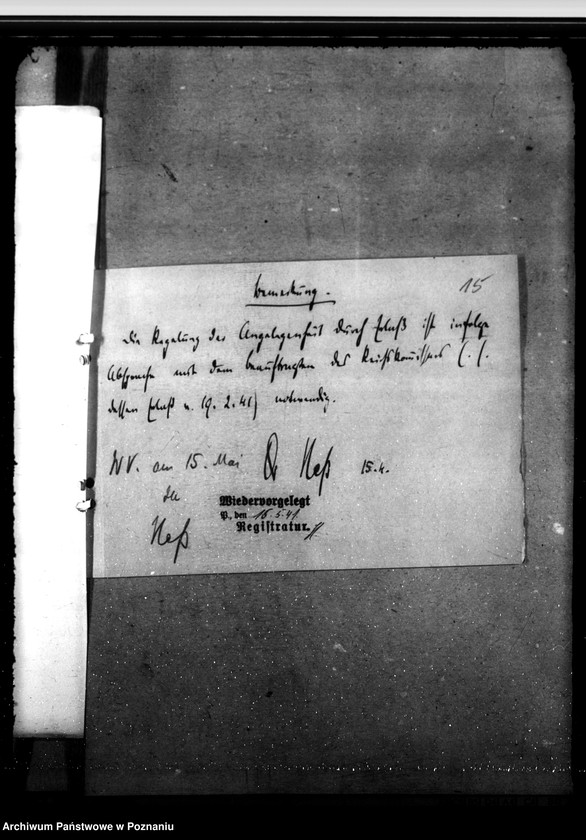 15
Bemerkung.
Die Regelung der Angelegenheit durch Erlaß ist infolge
Absprache mit dem Beauftragten des Reichskommissars (s.
dessen Erlaß v. 19.2.41) notwendig.
WV. am 15. Mai Heß 15.4.
Heß
Wiedervorgelegt
P., den 15.5.41
Registratur.
Archiwum Państwowe w Poznaniu